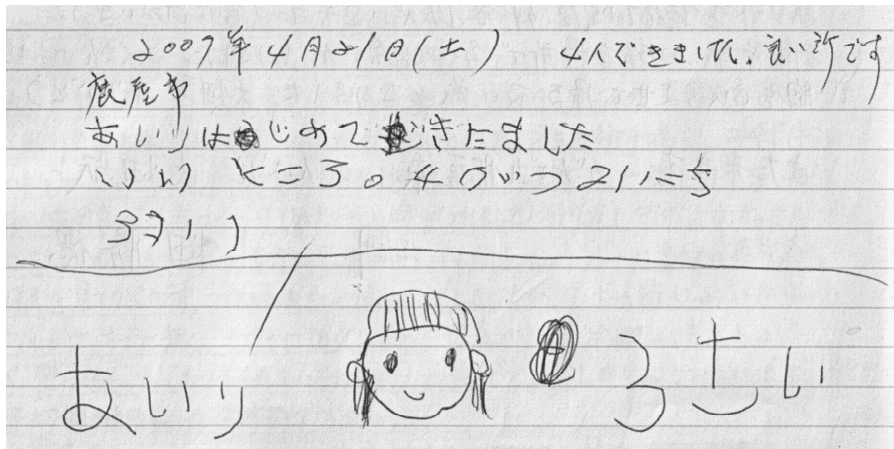 2007年4月21日(土) 4人できました。良い所です
鹿屋市
あいりはじめてきたました
いいところ。4がつ21にち
あいり
あいり ろさい